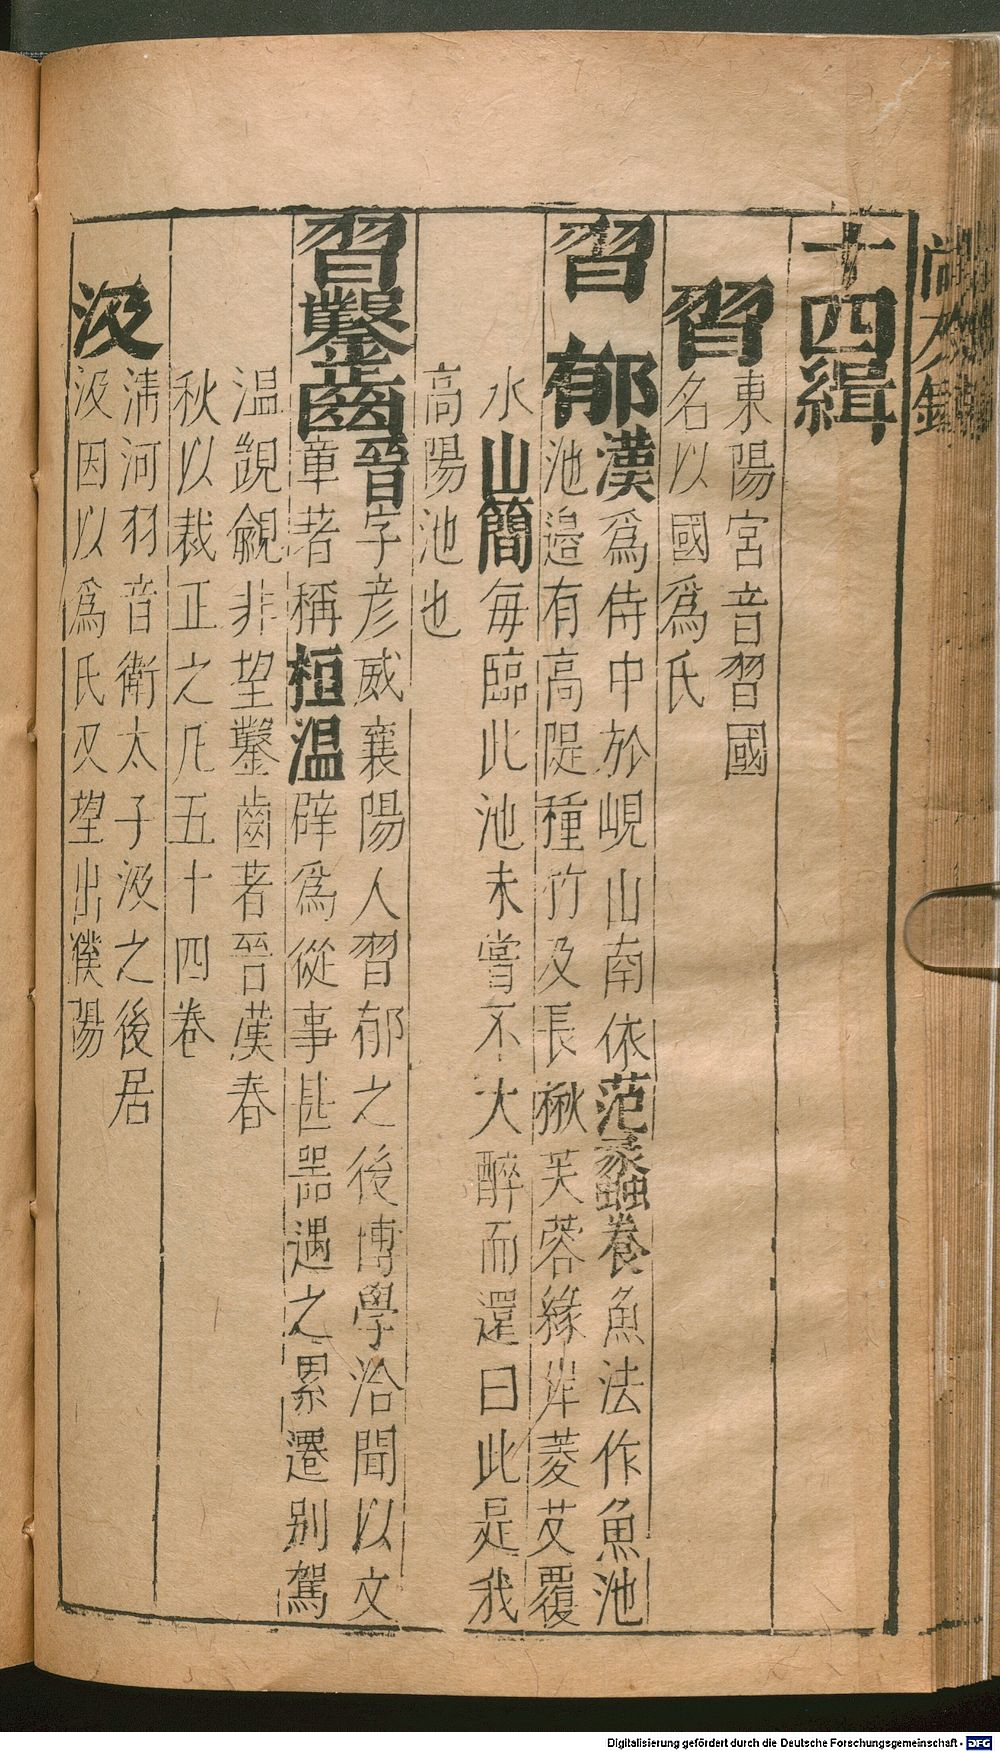 十四緝
習
東陽宮音習國
名以國為氏
習郁
漢為侍中於峴山南依范蠡養魚法作魚池
池邉有高隄種竹及長楸芙蓉緣岸菱芡覆
水山簡每臨此池未嘗不大醉而還曰此是我
高陽池也
習鑿齒
晉字彥威襄陽人習郁之後博學洽聞以文
章著稱桓温辟為從事甚器遇之累遷别駕
温覬覦非望鑿齒著晉漢春
秋以裁正之凡五十四卷
汲
清河羽音衛太子汲之後居
汲因以為氏又望出濮陽
Digitalisierung gefördert durch die Deutsche Forschungsgemeinschaft - DFG